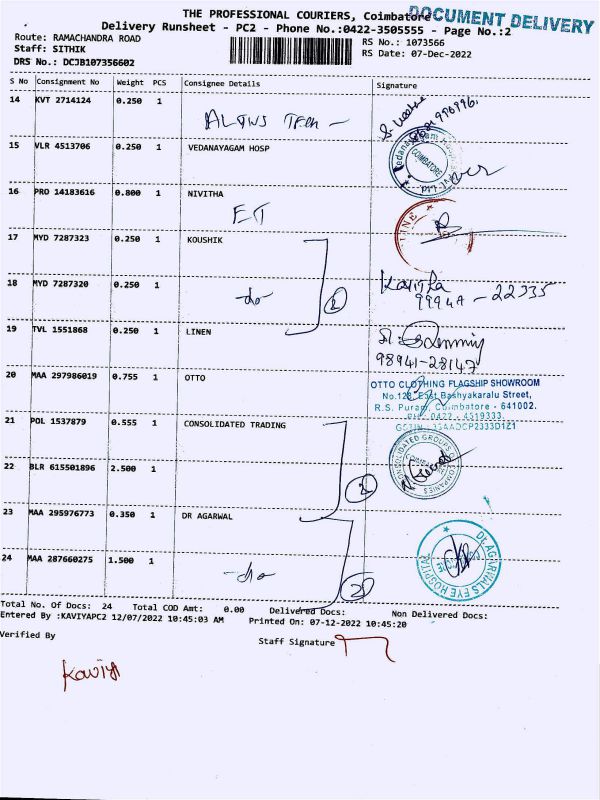 THE PROFESSIONAL COURIERS, Coimbatore
DOCUMENT DELIVERY
Delivery Runsheet - PC2 - Phone No.:0422-3505555 - Page No.:2
Route: RAMACHANDRA ROAD
RS No.: 1073566
Staff: SITHIK
RS Date: 07-Dec-2022
DRS No.: DC3B107356602
S No Consignment No Weight PCS Consignee Details Signature
14 KVT 2714124 0.250 1
15 VLR 4513706 0.250 1 VEDANAYAGAM HOSP
COIMBATORE
16 PRO 14183616 0.800 1 NIVITHA
ET
LINE
17 MYD 7287323 0.250 1 KOUSHIK
18 MYD 7287320 0.250 1
-do- 2
Kavitha
9994A - 22335
19 TVL 1551868 0.250 1 LINEN
98941-28147
20 MAA 297986019 0.755 1 OTTO
OTTO CLOTHING FLAGSHIP SHOWROOM
No.128, East Bashyakaralu Street,
R.S. Puram, Coimbatore - 641002.
PH: 0422 - 4519333.
GSTIN : 33AADCP2333D1Z1
21 POL 1537879 0.555 1 CONSOLIDATED TRADING
CONSOLIDATED GROUPS OF COMPANIES
22 BLR 615501896 2.500 1
2
23 MAA 295976773 0.350 1 DR AGARWAL
DR. AGARWALS EYE HOSPITAL
24 MAA 287660275 1.500 1
-do- 2
Total No. Of Docs: 24 Total COD Amt: 0.00 Delivered Docs: Non Delivered Docs:
Entered By :KAVIYAPC2 12/07/2022 10:45:03 AM Printed On: 07-12-2022 10:45:20
Verified By
Staff Signature
Kaviya